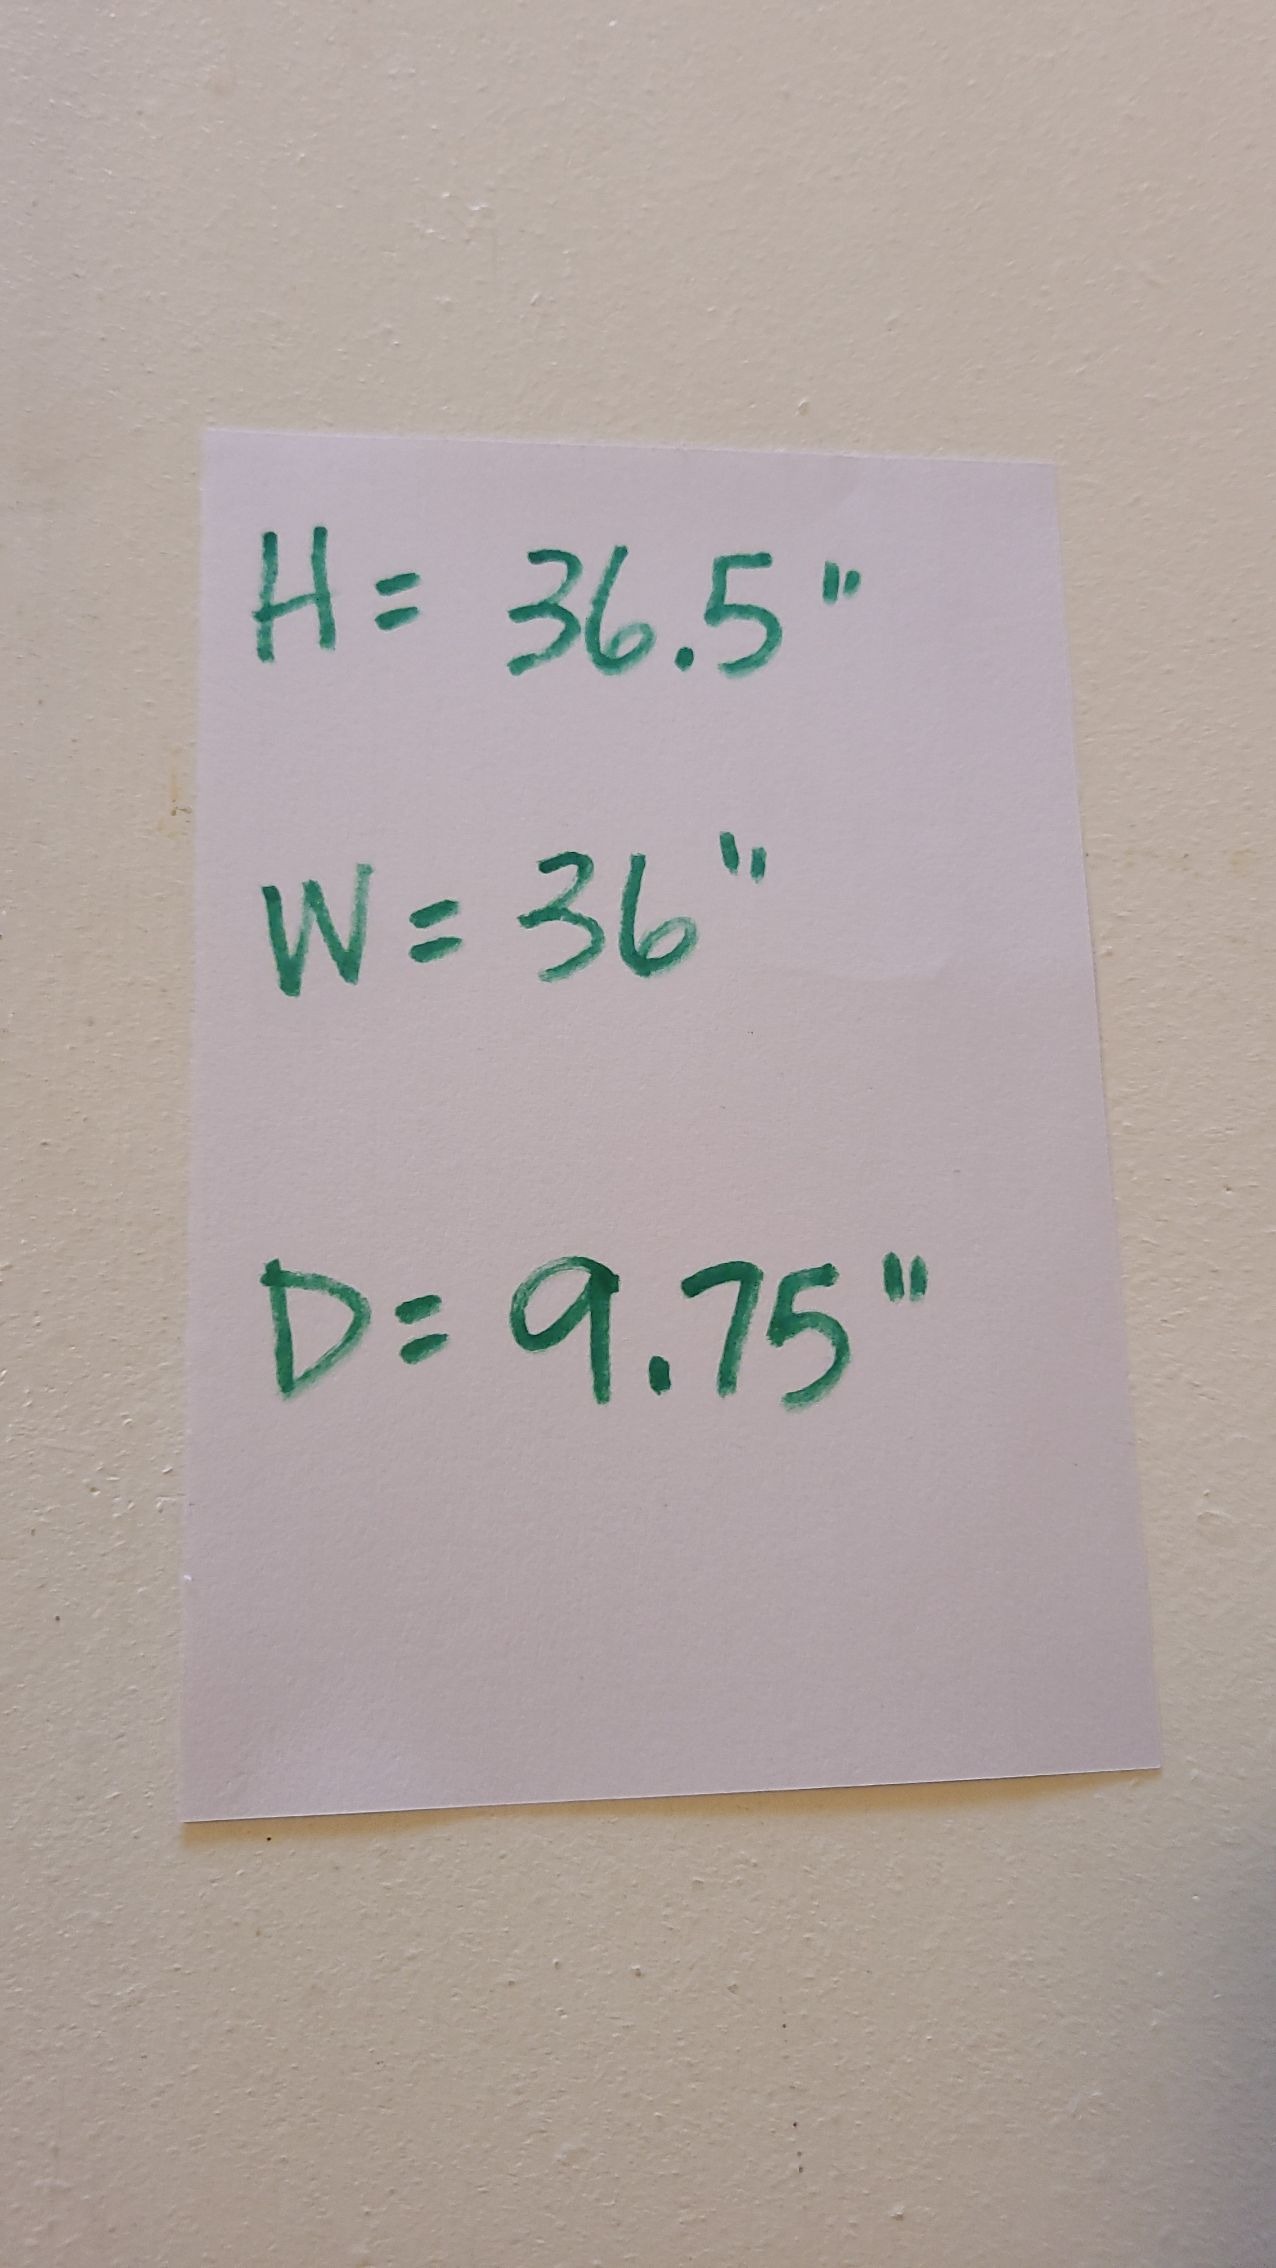 H = 36.5"
W = 36"
D = 9.75"